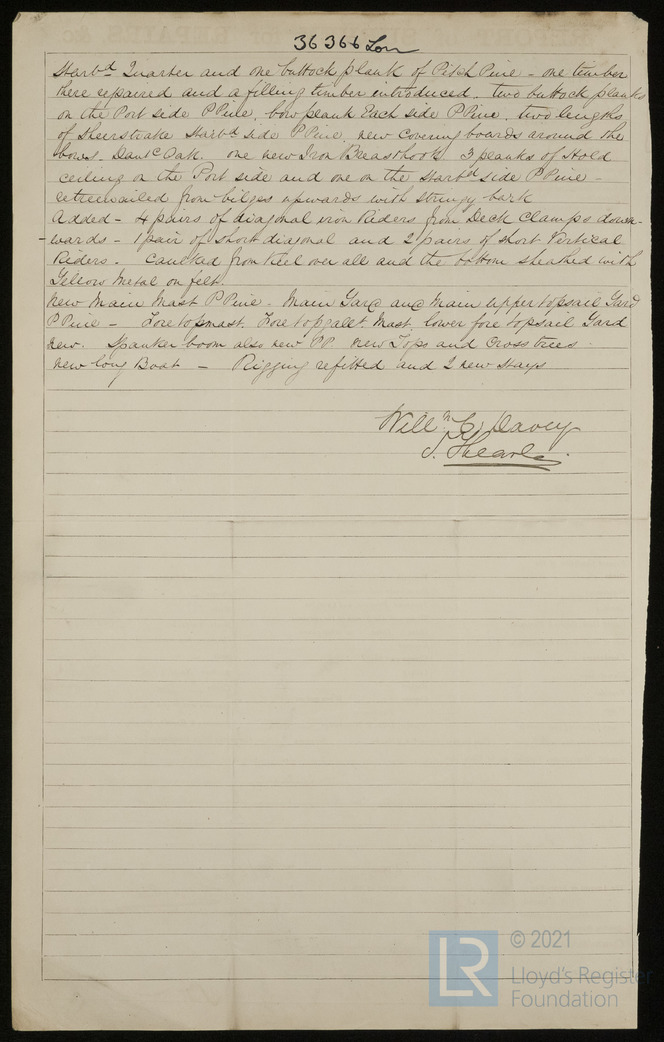 36366 Lon
Starbd Quarter and one buttock plank of Pitch Pine - one timber
there repaired and a filling timber introduced. two buttock planks
on the Port side P Pine, bow plank Each side P Pine, two lengths
of Sheerstrake Starbd side P Pine, new covering boards around the
bows. Dantc Oak. one new Iron Breasthook 3 planks of Hold
ceiling on the Port side and one on the Starbd side P Pine -
retreenailed from bilges upwards with stringy bark
Added - 4 pairs of diagonal iron Riders from Deck Clamps down-
-wards - 1 pair of short diagonal and 2 pairs of short Vertical
Riders. Caulked from Keel over all and the bottom sheathed with
Yellow Metal on felt.
New Main Mast P Pine - Main Yard and Main upper topsail Yard
P Pine - Foretopmast. Foretopgalt Mast, lower fore topsail Yard
new. Spanker boom also new PP. new Tops and cross trees
new long Boat - Rigging refitted and 2 new stays
Willm E. Davey
S. Thearle.
LR
© 2021
Lloyd's Register
Foundation